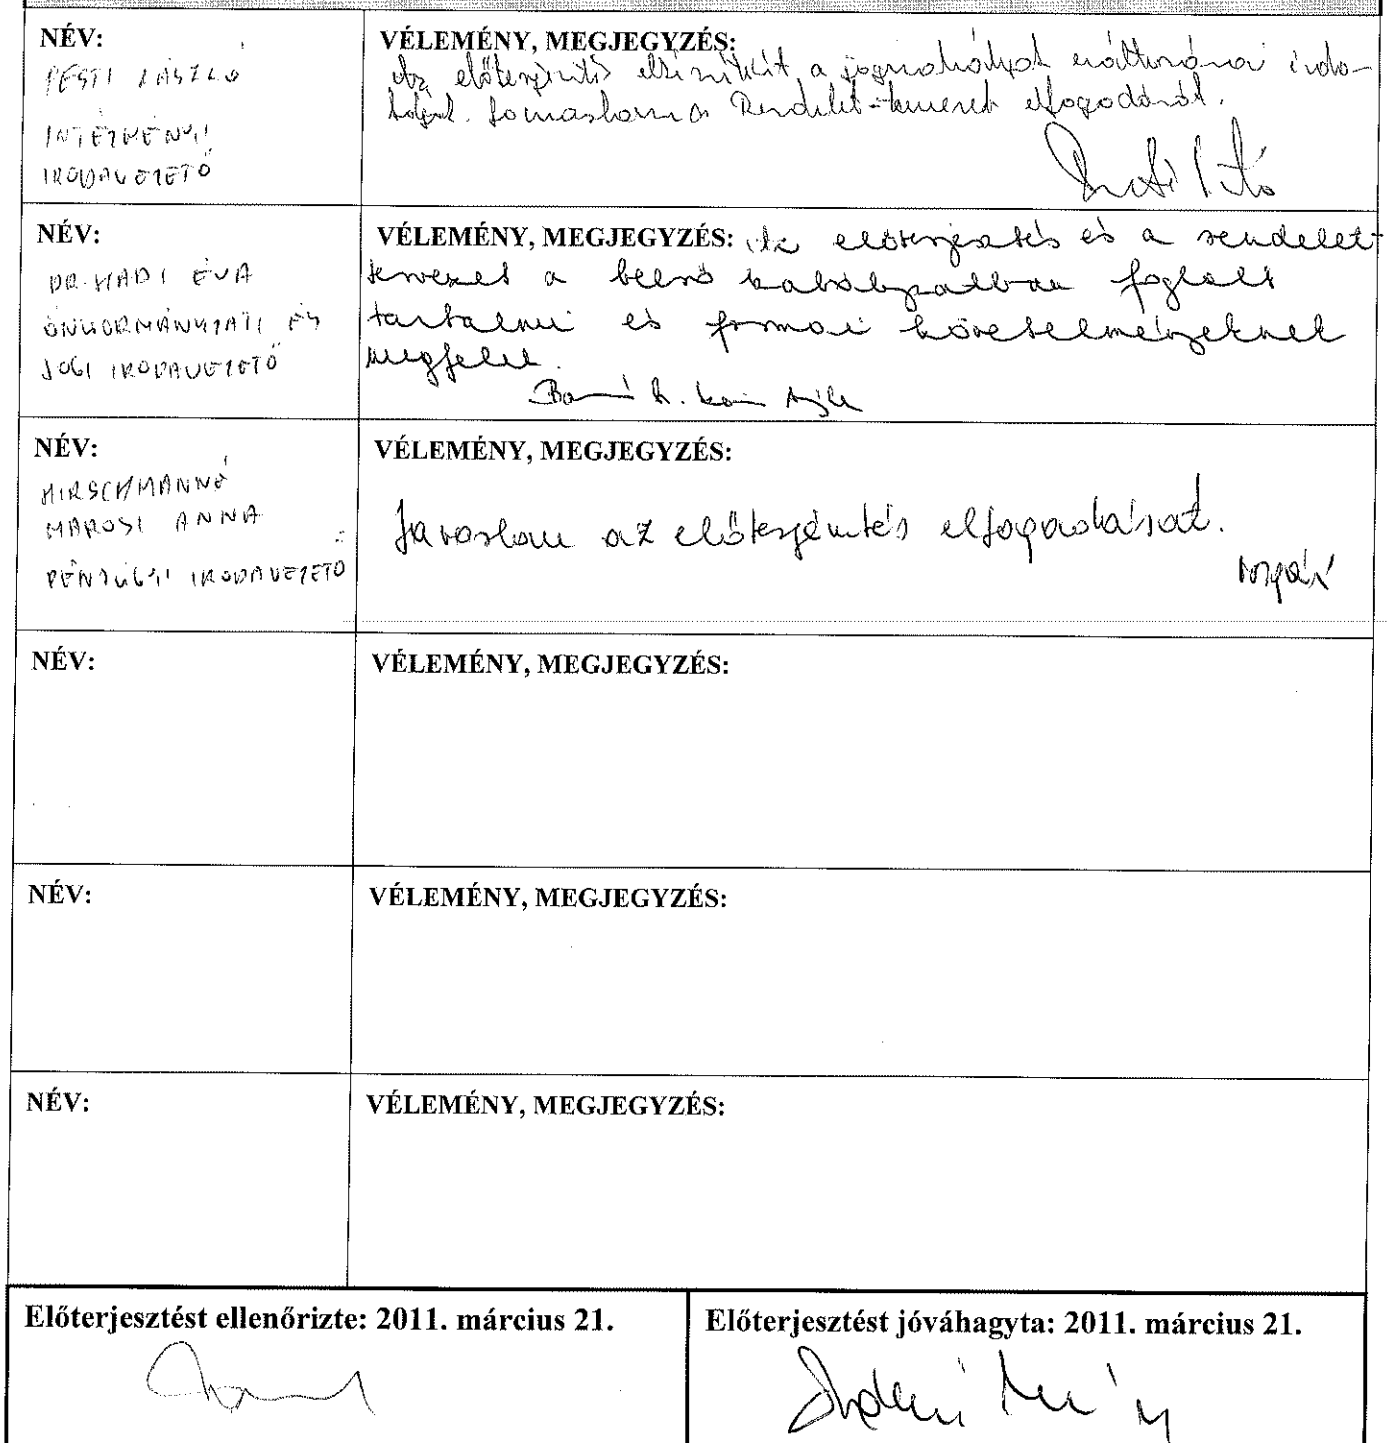 NÉV:
PESTI LÁSZLÓ
INTÉZMÉNYI
IRODAVEZETŐ
VÉLEMÉNY, MEGJEGYZÉS:
Az előterjesztés elkészítését a jogszabályok változásai indo-
kolják. Javaslom a Rendelet-tervezet elfogadását.
NÉV:
DR. HADI ÉVA
ÖNKORMÁNYZATI ÉS
JOGI IRODAVEZETŐ
VÉLEMÉNY, MEGJEGYZÉS: Az előterjesztés és a rendelet-
tervezet a belső szabályzatban foglalt
tartalmi és formai követelményeknek
megfelel.
NÉV:
HIRSCHMANNÉ
MAROSI ANNA
PÉNZÜGYI IRODAVEZETŐ
VÉLEMÉNY, MEGJEGYZÉS:
Javaslom az előterjesztés elfogadását.
NÉV:
VÉLEMÉNY, MEGJEGYZÉS:
NÉV:
VÉLEMÉNY, MEGJEGYZÉS:
NÉV:
VÉLEMÉNY, MEGJEGYZÉS:
Előterjesztést ellenőrizte: 2011. március 21.
Előterjesztést jóváhagyta: 2011. március 21.